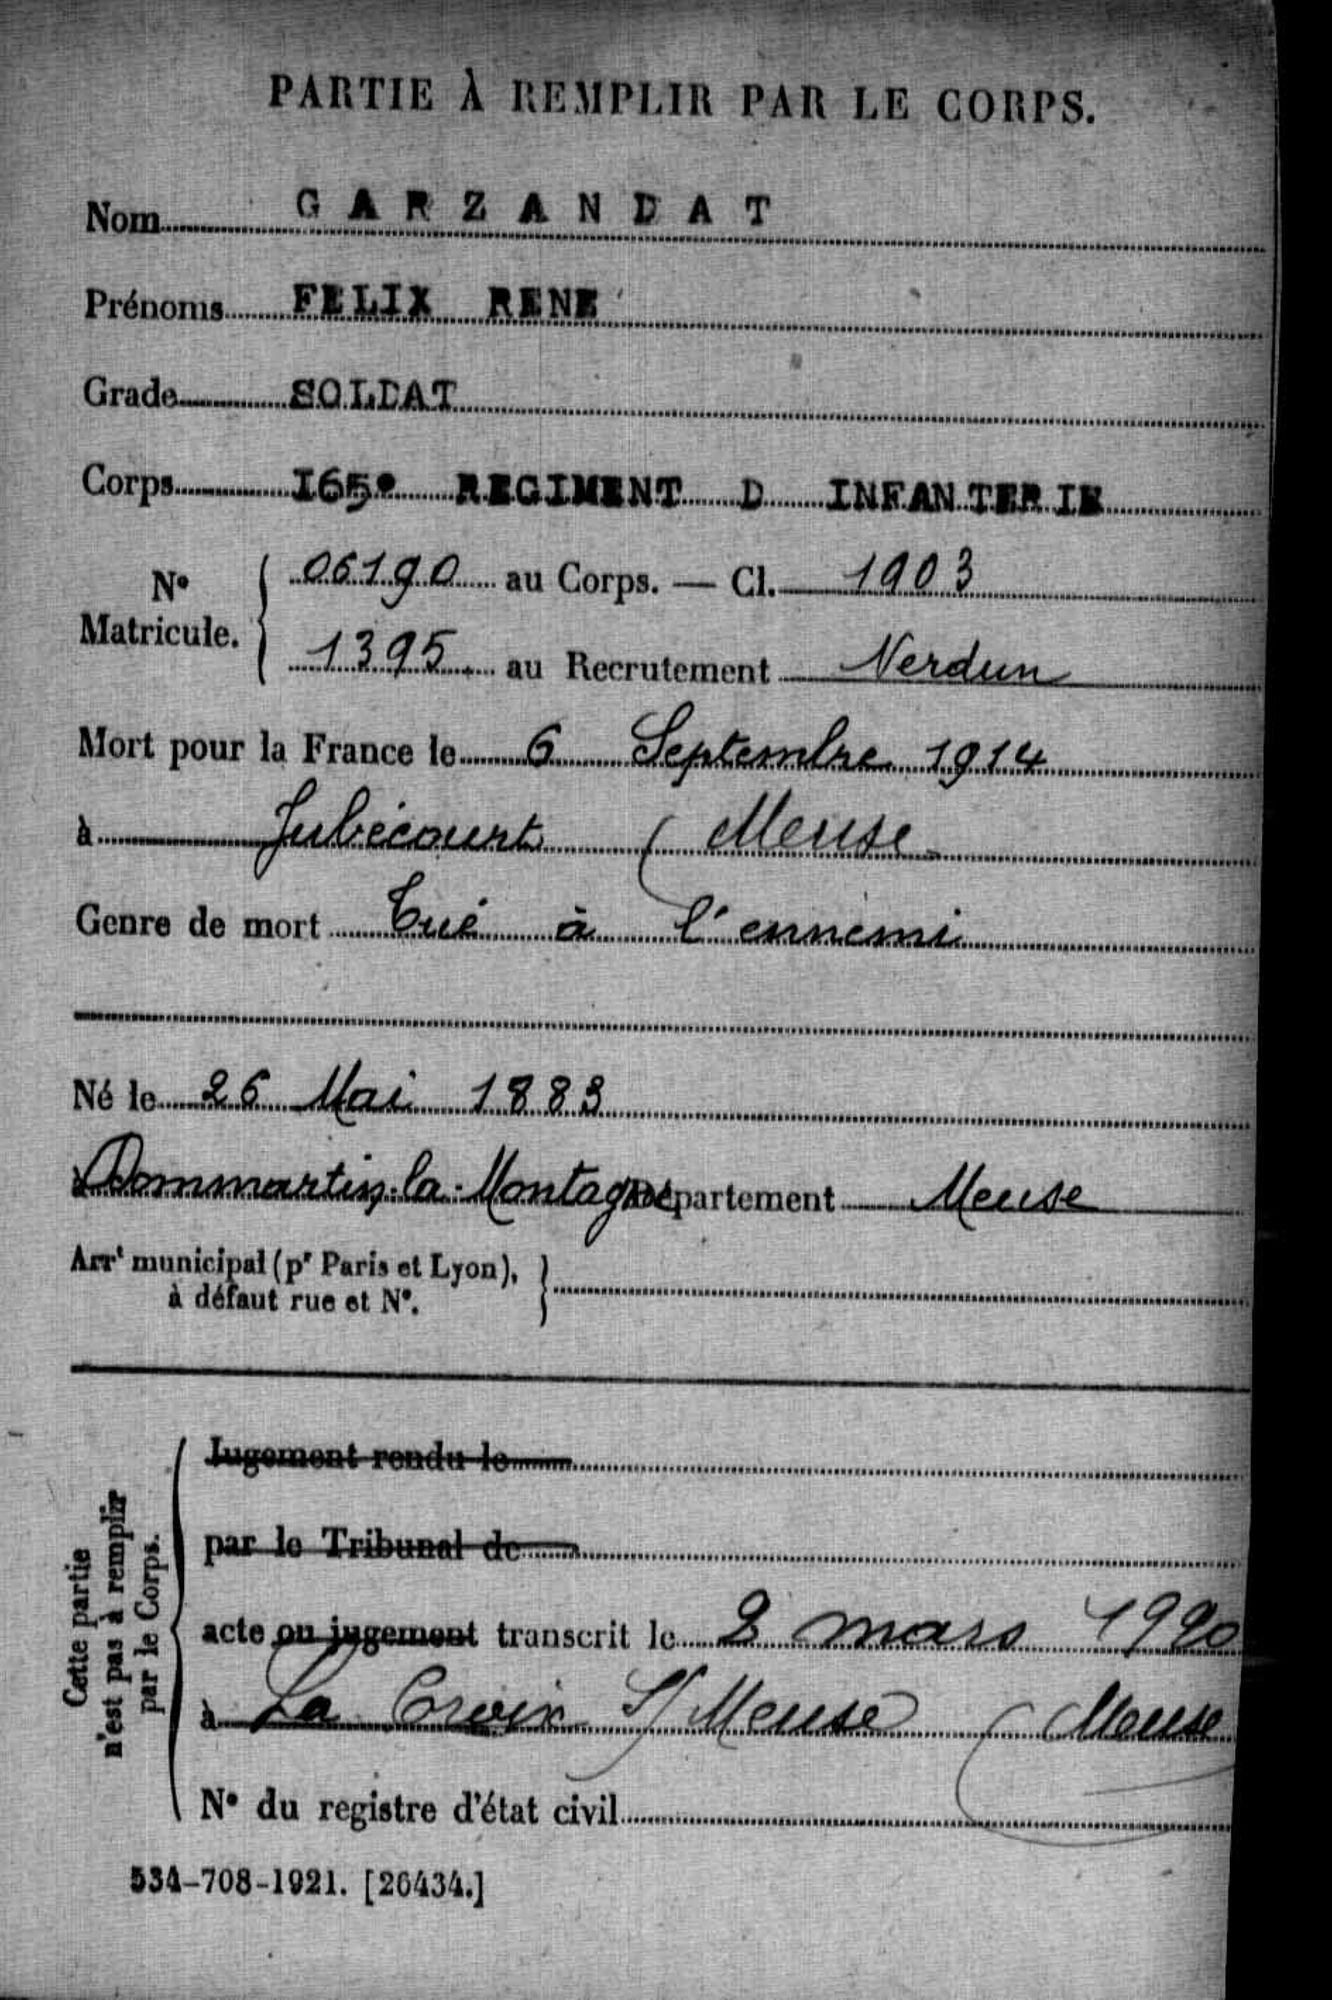 PARTIE À REMPLIR PAR LE CORPS.
Nom GARZANDAT
Prénoms FELIX RENE
Grade SOLDAT
Corps I65e REGIMENT D INFANTERIE
No Matricule. 06190 au Corps. — Cl. 1903
1395 au Recrutement Verdun
Mort pour la France le 6 Septembre 1914
à Jubécourt (Meuse
Genre de mort Tué à l'ennemi
Né le 26 Mai 1883
à Dommartin-la-Montagne Département Meuse
Arrt municipal (pr Paris et Lyon),
à défaut rue et No.
Cette partie
n'est pas à remplir
par le Corps.
Jugement rendu le
par le Tribunal de
acte ou jugement transcrit le 2 mars 1920
à La Croix S/ Meuse (Meuse
No du registre d'état civil
534-708-1921. [26434.]